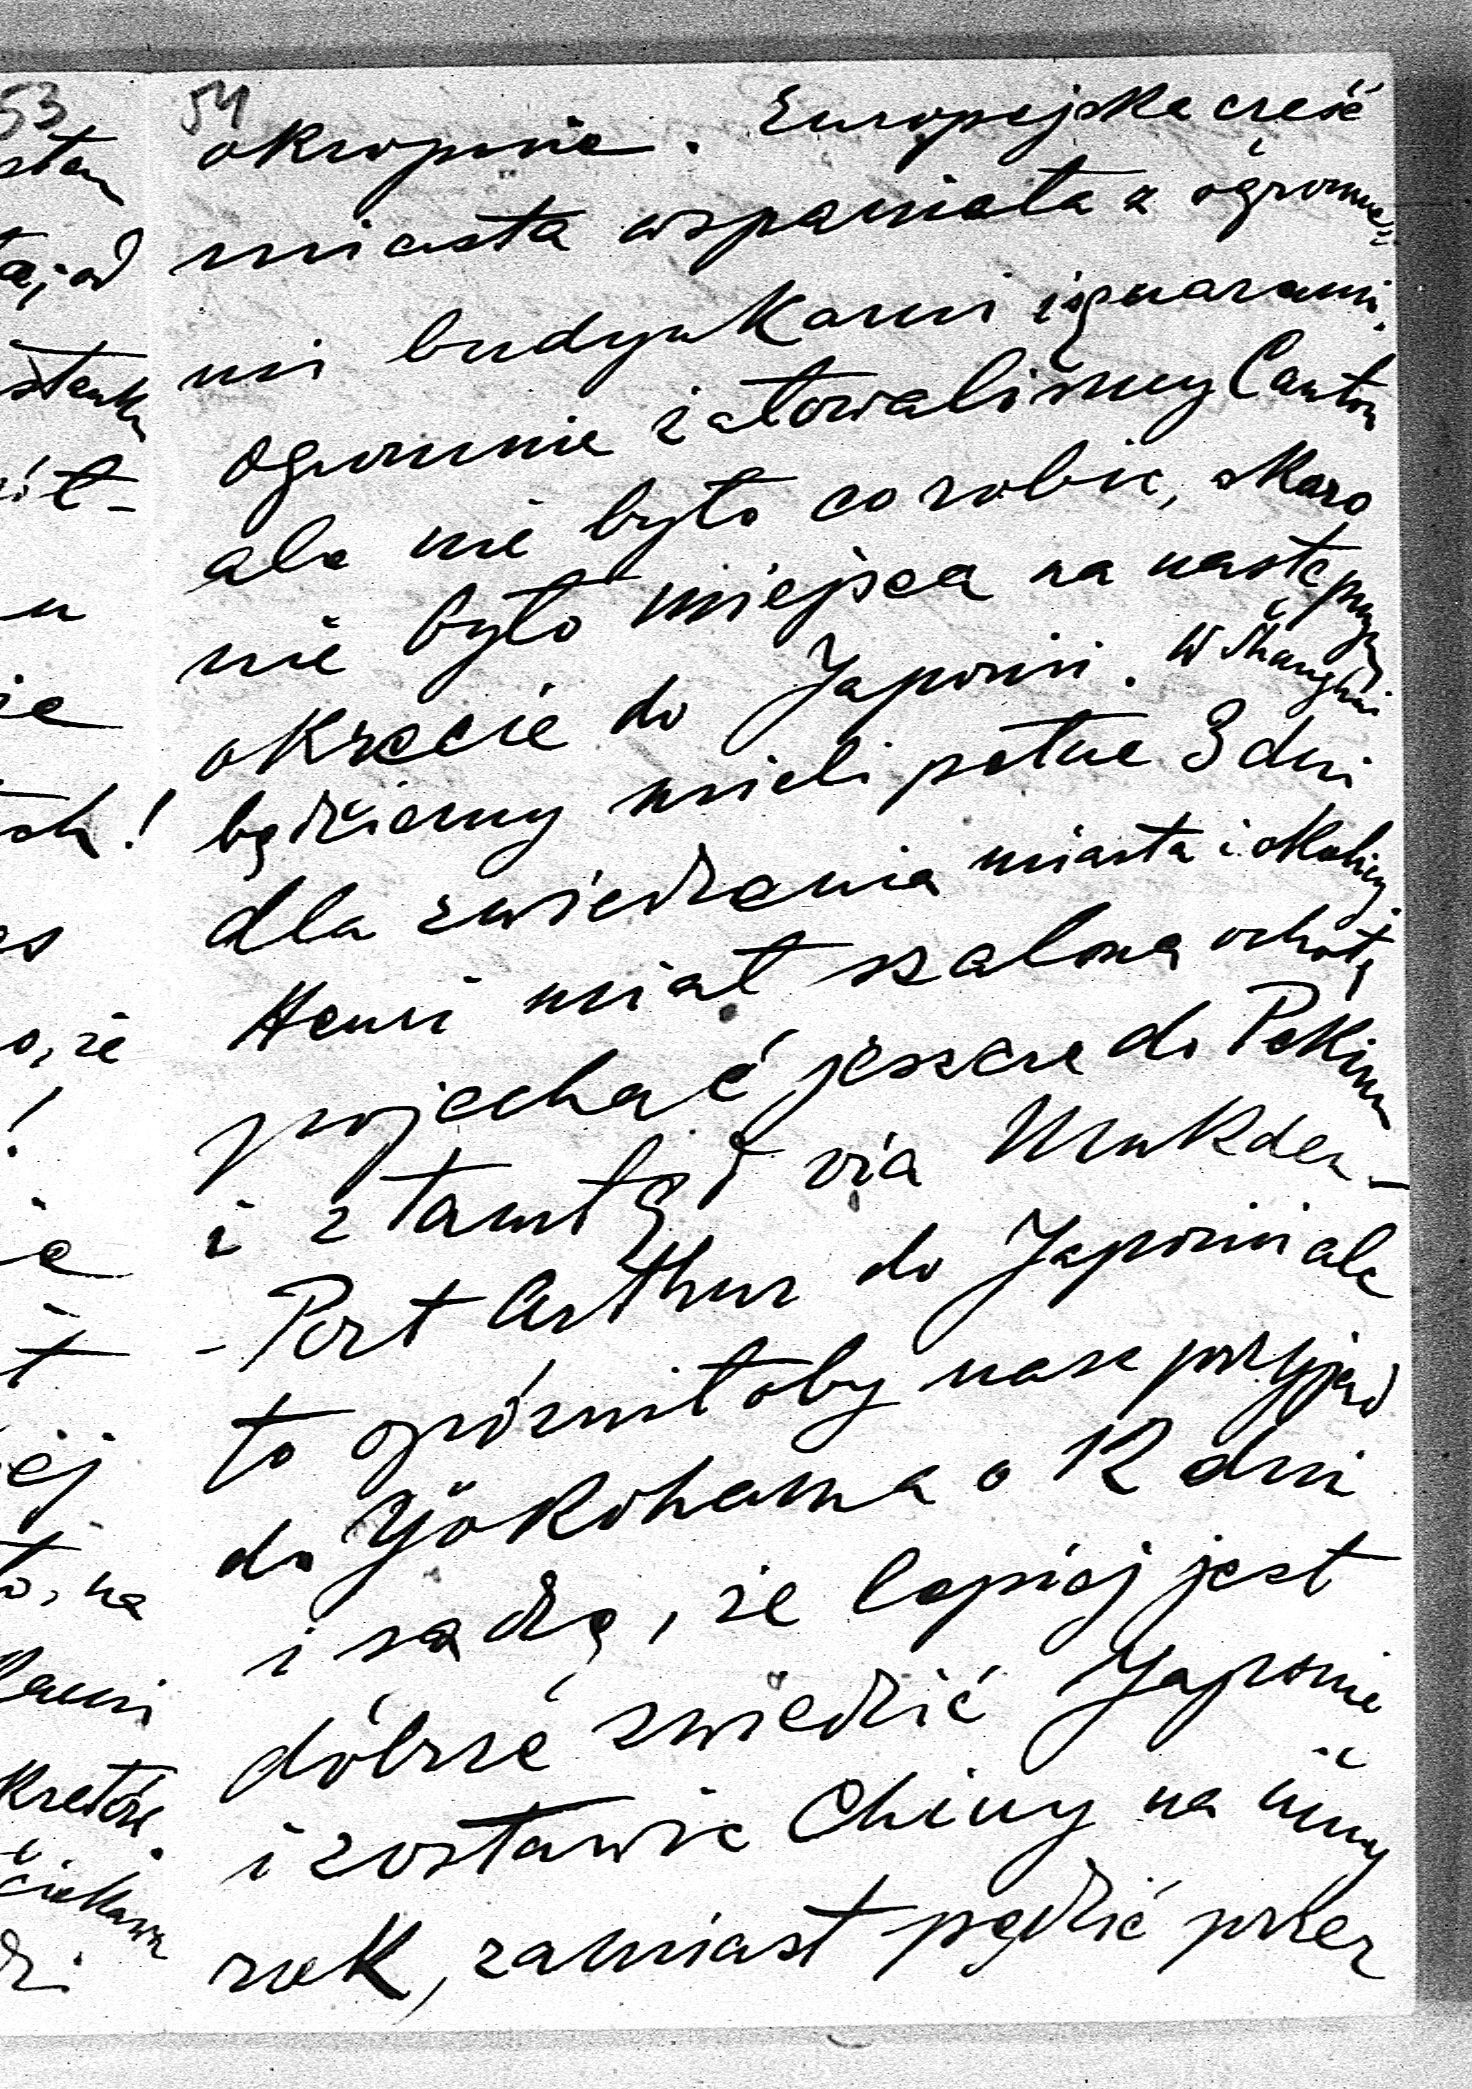 53 54
okropnie. Europejska cześć
miasta wspaniała z ogromne=
mi budynkami i sqwarami.
Ogromnie żałowaliśmy Canton
ale nie było co robić, skoro
nie było miejsca na następnym
okręcie do Japonii. W Shanghai
będziemy mieli pełne 3 dni
dla zwiedzenia miasta i okolicy
Henri miał szaloną ochotę
pojechać jeszcze do Pekinu
i z tamtąd via Mukden -
- Port Arthur do Japonii ale
to opóźniłoby nasz przyjazd
do Yokohama o 12 dni
i sądzę, że lepiej jest
dobrze zwiedzić Japonie
i zostawić Chiny na inny
rok, zamiast pędzić przez